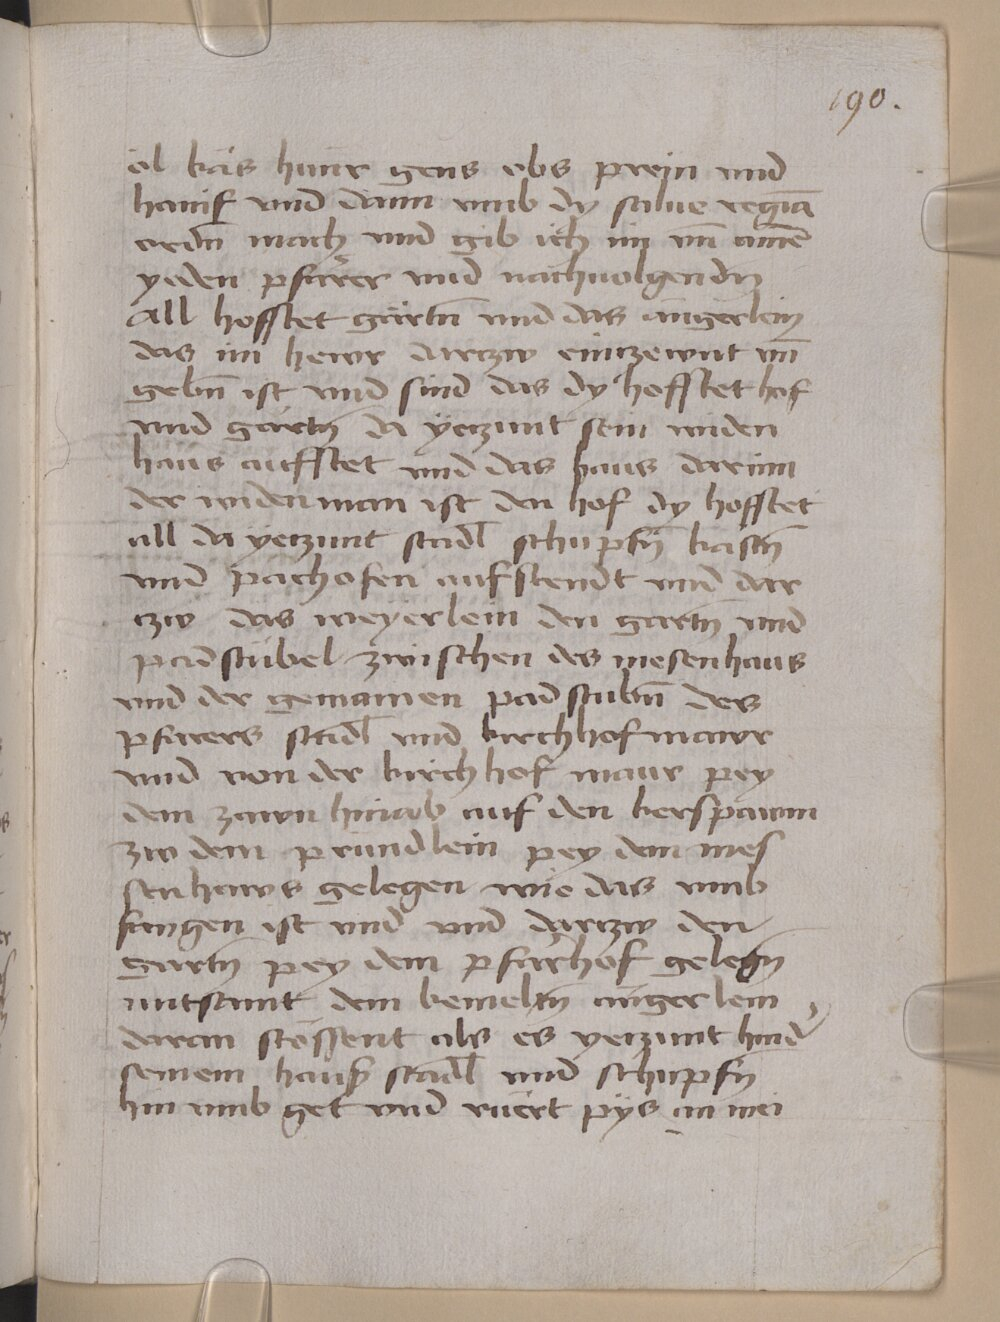 190.
öl käs hünr gens obs prein und
hanif und dann umb dy salue regiā
ordn̄ mach und gib ich im un̄ ainē
yeden pfarrer und nachuolgendn̄
All hofstet gärtn̄ und das angerlein
das im hewr dartzw eintzewnt un̄
gebn̄ ist und sind das dy hofstet hof
und gartn̄ da yetzunt sein widen
haus aufstet und das haus darinn
der widenman ist den hof dy hofstet
all da yetzunt stadl schupfn̄ kastn̄
und pachofen aufstendt und dar
tzw das weyerlein den gartn̄ und
padstübel zwischen des mesenhaus
und der gemainen padstubn̄ des
pfarrers stadl und kirchhofmawr
und von der kirchhof maur pey
dem zawn hinab auf den kerspawm
zw dem pründlein pey dem mes
senhaws gelegen wie das umb
fangen ist und und dartzw den
gartn̄ pey dem pfarhof gelegn̄
mitsamt dem bemeltn̄ angerlein
daran stossent als es yetzunt hind'
seinem hauß stadl und schupfn̄
hin umb get und ruert pys an mei